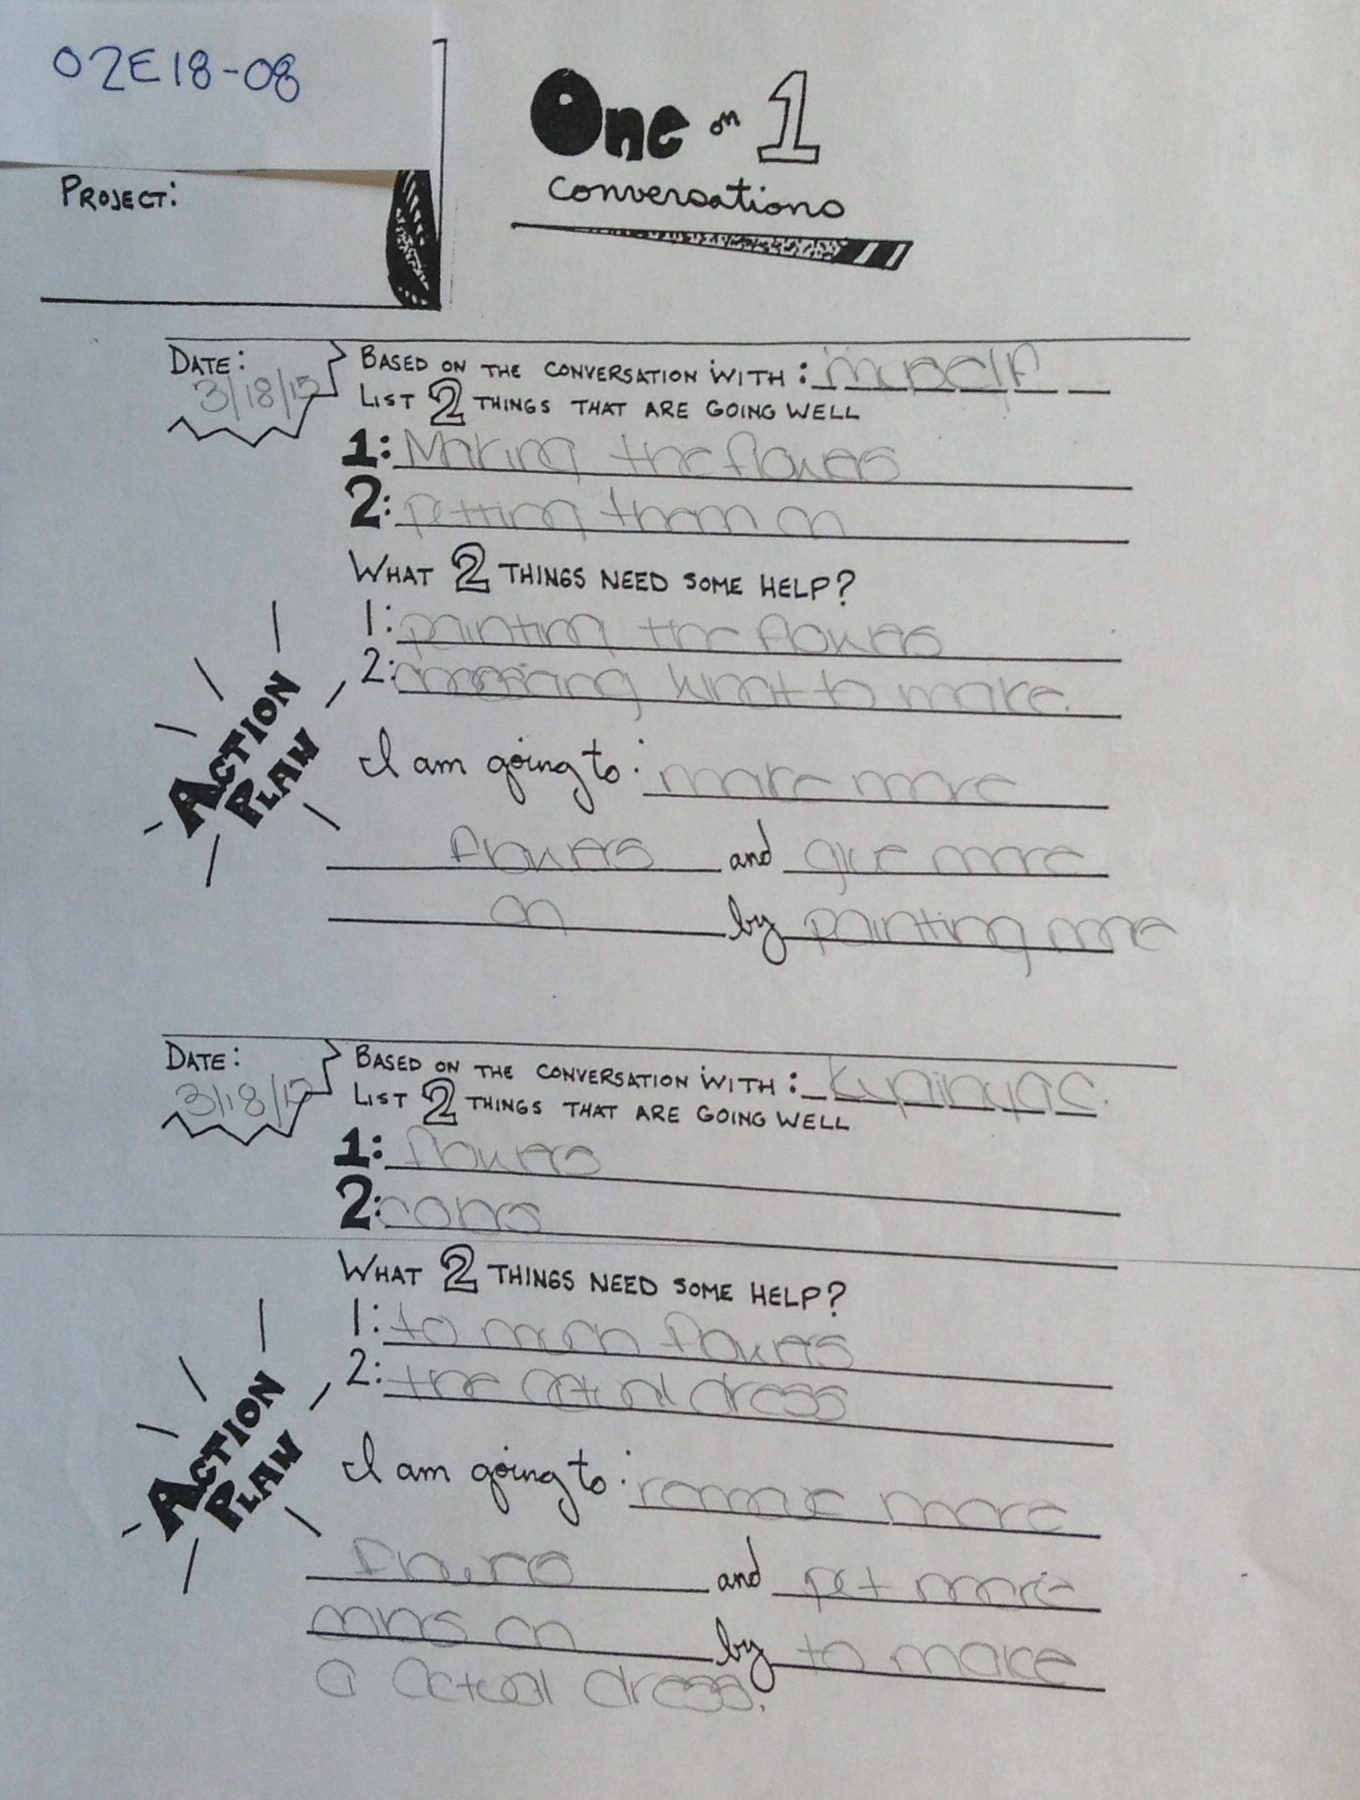 02E18-08
One on 1
Conversations
PROJECT:
DATE:
3/18/15
BASED ON THE CONVERSATION WITH: myself
LIST 2 THINGS THAT ARE GOING WELL
1: Making the flowers
2: petting them on
WHAT 2 THINGS NEED SOME HELP?
1: painting the flowers
2: what to make.
ACTION PLAN
I am going to: make more
flowers and give more
on by painting more
DATE:
3/18/15
BASED ON THE CONVERSATION WITH:
LIST 2 THINGS THAT ARE GOING WELL
1: flowers
2: cons
WHAT 2 THINGS NEED SOME HELP?
1: to much flowers
2: the actual dress
ACTION PLAN
I am going to: more
and pet more
on by to make
a actual dress.